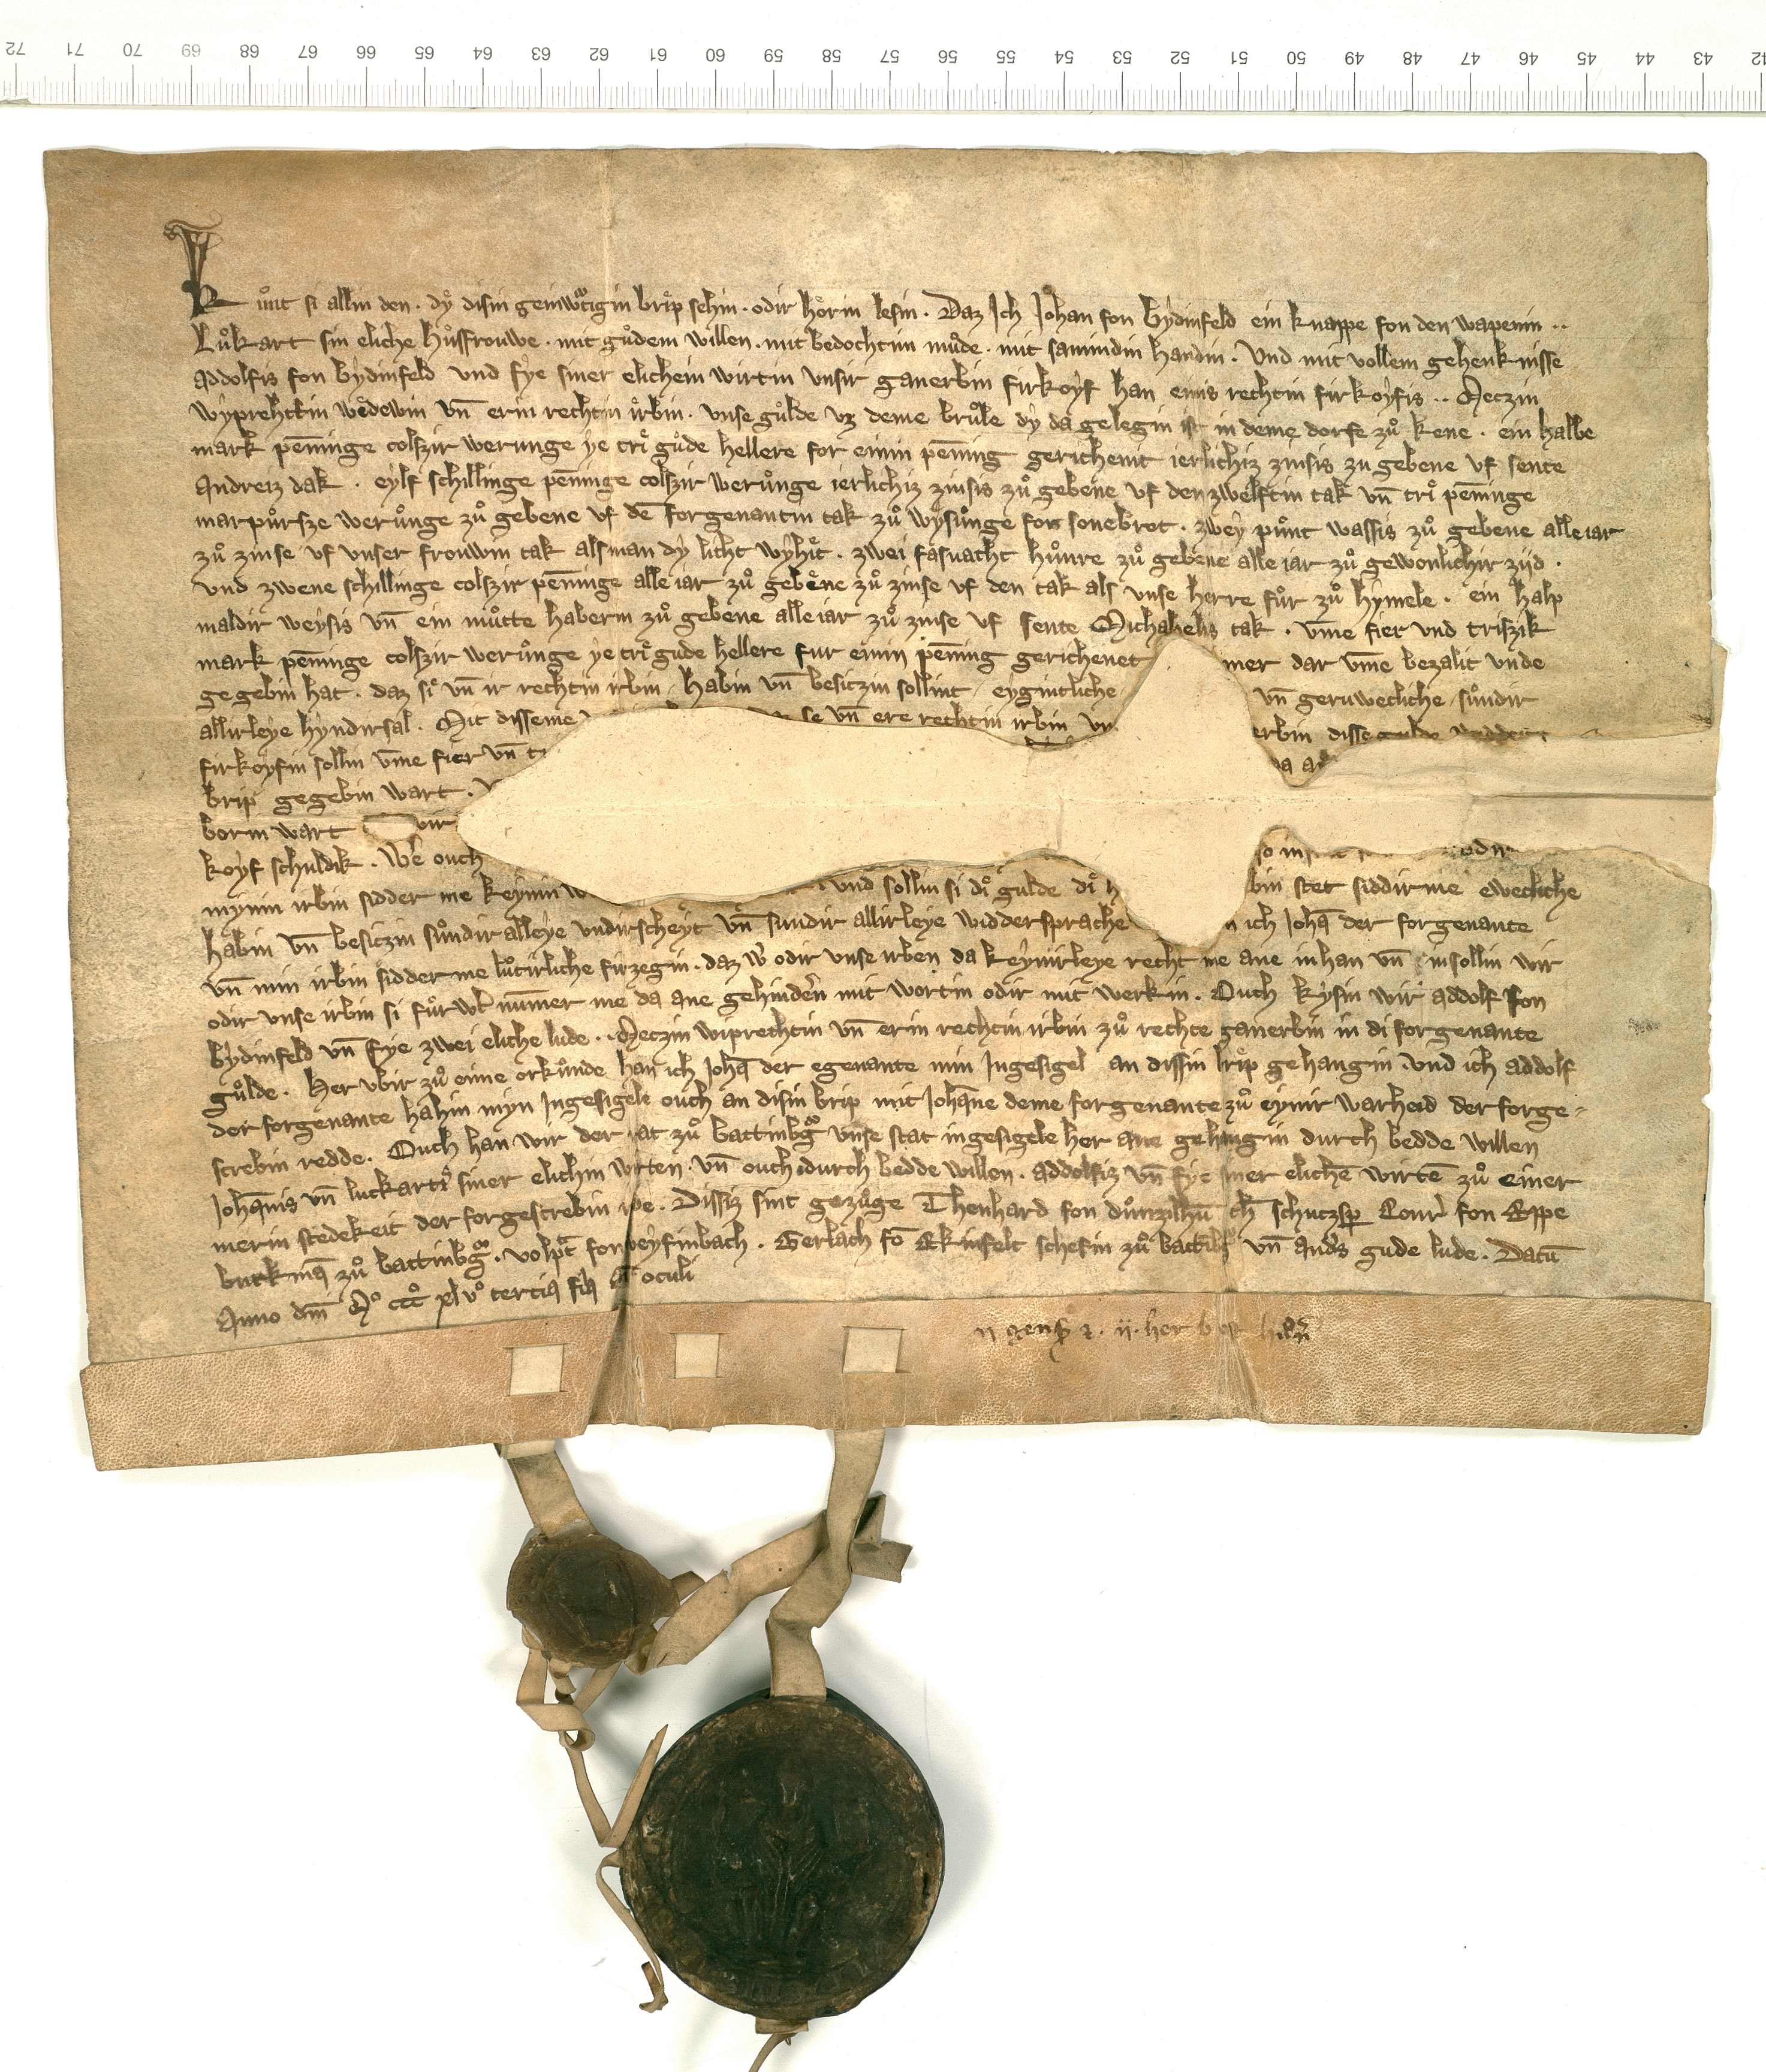 72 71 70 69 68 67 66 65 64 63 62 61 60 59 58 57 56 55 54 53 52 51 50 49 48 47 46 45 44 43 42
Kuͦnt si allin den · dẏ disin geinwͦtigin brip sehin · odir horin lesin · Daz Ich Johan fon bẏdinfeld ein knappe fon den wapenin ··
Luͦkart sin eliche huͦsfrouwe · mit guͦdem willen · mit bedochtim muͦde · mit sammdin handin · Und mit vollem gehenknisse
addolfis fon bẏdinfeld vnd fẏe siner elichein wirtin vnsir ganerbin firkoẏf han einis rechtin firkoẏfis ·· Meczin
wẏprehttin wedewin vn̄ erin rechtin irbin · vnse guͦlde vz deme bruͦle dẏ da gelegin ist in deme dorfe zuͦ kene · ein halbe
mark pen̄inge colszir werunge ẏe tri guͦde hellere for einin pen̄ing gerichemt ierlichiz zinsis zu gebene vf sente
Andreiz dak · eẏlf schillinge pen̄inge colszir weruͦnge ierlichiz zinsis zuͦ gebene vf den zwelftin tak vn̄ tri pen̄inge
marpuͦrsze weruͦnge zuͦ gebene vf dē forgenantin tak zuͦ wẏsuͦnge for sonebrot · zweẏ puͦnt wassis zuͦ gebene alle iar
zuͦ zinse vf vnser frouwin tak alsman dẏ licht wẏhit · zwei fasnacht huͦnre zuͦ gebene alle iar zuͦ gewonlichir zijd ·
vnd zwene schillinge colszir pen̄inge alle iar zuͦ gebene zuͦ zinse vf den tak als vnse herre fuͦr zuͦ hẏmele · ein halp
maldir weẏsis vn̄ ein muͦtte haberin zuͦ gebene alle iar zuͦ zinse vf sente Michahelis tak · vm̄e fier vnd triszik
mark pen̄inge colszir weruͦnge ẏe tri gude hellere fur einin pen̄ing gerichenet mer dar vm̄e bezalit vnde
gegebin hat · daz si vn̄ ir rechtin irbin habin vn̄ besiczin sollint eẏgintliche vn̄ geruwecliche suͦndir
allirleẏe hẏndirsal · Mit disseme se vn̄ ere rechtin irbin vn erbin disse gulde widdere
firkoẏfin sollin vm̄e fier vn̄ tr da a
brip gegebin wart ·
born wart vir
koẏf schuldik · We ouch so in odir
mẏnin irbin sidder me keẏnin w vnd sollin si di gulde di h bin stet siddir me ewecliche
habin vn̄ besiczin suͦndir alleẏe vndirscheẏt vn̄ sundir allirleẏe widdersprache n ich Johā der forgenante
vn̄ min irbin sidder me luͦtirliche firzegin · daz w odir vnse irben da keẏnirleẏe recht me ane in han vn̄ insollin wir
odir vnse irbin si fuͦrw̄t num̄er me da ane gehindern mit wortin odir mit werkin · Ouch kẏsin wir addolf fon
bẏdinfeld vn̄ fẏe zwei eliche lude · Meczin wiprechtin vn̄ erin rechtin irbin zuͦ rechte ganerbin in di forgenante
guͦlde · Her vbir zuͦ eime orkuͦnde han ich Johā der egenante min Ingesigel an dissin brip gehangin · vnd ich addolf
der forgenante hahin mẏn Ingesigele ouch an disin brip mit Johāne deme forgenante zuͦ eẏnir warheid der forge-
screbin redde · Ouch han wir der rat zuͦ battinbg vnse stat ingesigele her ane gehangin durch bedde willen
Johānis vn̄ luckarti siner elichin wirten · vn̄ ouch durch bedde willen · addolfiz vn̄ fẏe iner elichē wirtē zuͦ einer
merin stedekeit der forgescrebin rede · Dissiz sint gezuͦge Thenhard fon duͦnzilhuͣ ch schuczsp̄ Conr̄ fon Eppe
burkmā zuͦ battinbg · volpt̄ for weẏfinbach · Gerlach fō Ekinfelt schefin zuͦ battībg vn̄ ands gude lude · Datū
Anno dm̄ Mͦ cccͦ xlvͦ tercia fīa oculi